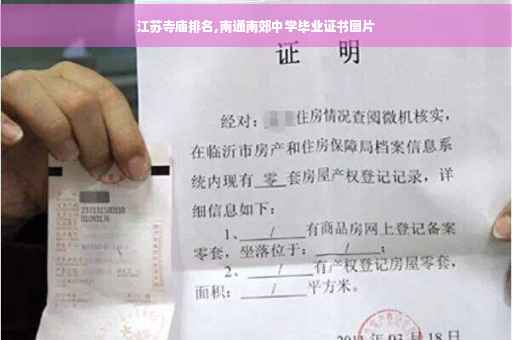 江苏寺庙排名,南通南郊中学毕业证书图片
证 明
经对: 住房情况查阅微机核实,
在临沂市房产和住房保障局档案信息系
统内现有 零 套房屋产权登记记录, 详
细信息如下:
1、 / 有商品房网上登记备案
零套, 坐落位于: / ;
2、 / 有产权登记房屋零套,
面积: / 平方米。
03 月 18 日